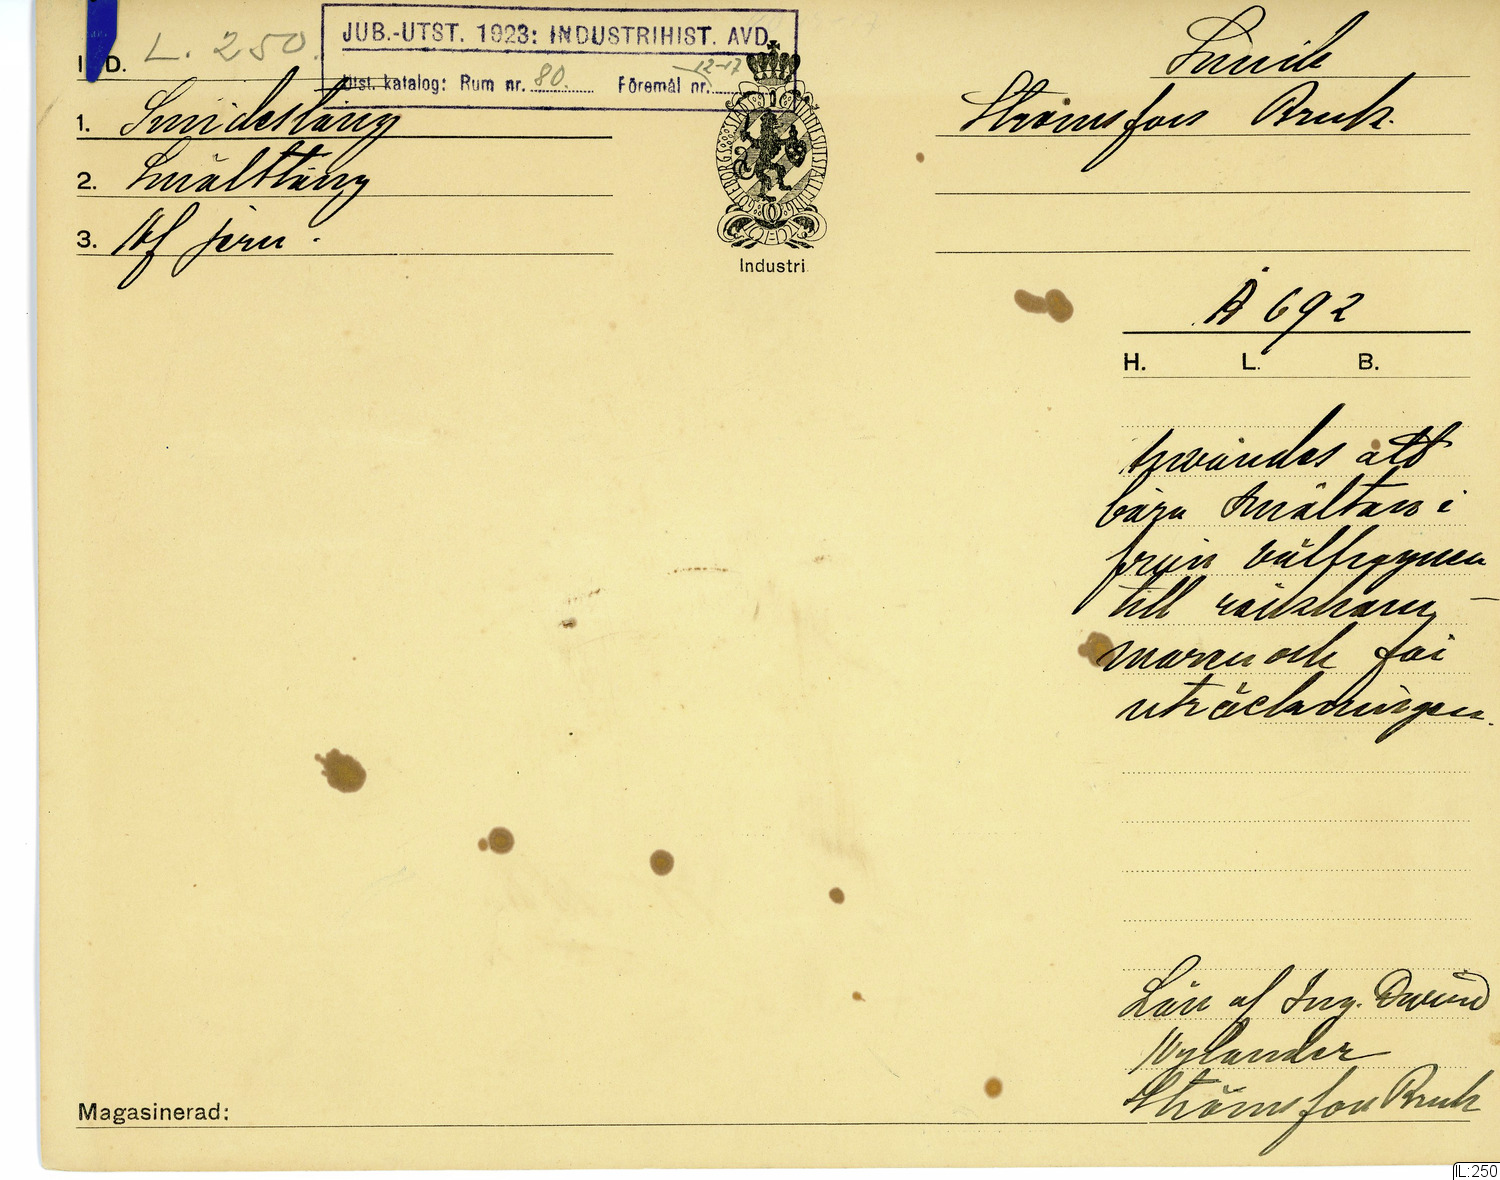 JUB.-UTST. 1923: INDUSTRIHIST. AVD.
Utst. katalog: Rum nr. 80. Föremål nr. 12-17
L. 250.
1. Smidestång
2. Smälttång
3. Af jern.
GÖTEBORGS STADS JUBILEUMSUTSTÄLLNING
Industri
Smide
Strömsfors Bruk.
Å 692
H. L. B.
Användes att
bära smältan i
från vällugnen
till räckham-
maren och för
uträckningen.
Lån af Ing. David
Nylander
Strömsfors Bruk
Magasinerad:
L:250